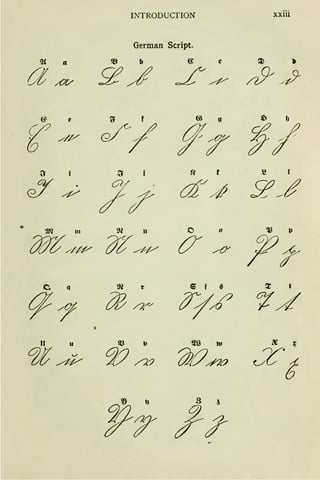 INTRODUCTION xxiii
German Script.
𝔄 𝔞 𝔅 𝔟 ℭ 𝔠 𝔇 𝔡
A a B b C c D d
𝔈 𝔢 𝔉 𝔣 𝔊 𝔤 ℌ 𝔥
E e F f G g H h
ℑ 𝔦 𝔍 𝔧 𝔎 𝔨 𝔏 𝔩
I i J j K k L l
𝔐 𝔪 𝔑 𝔫 𝔒 𝔬 𝔓 𝔭
M m N n O o P p
𝔔 𝔮 ℜ 𝔯 𝔖 ſ 𝔰 𝔗 𝔱
Q q R r S ſ s T t
𝔘 𝔲 𝔙 𝔳 𝔚 𝔴 𝔛 𝔵
U u V v W w X x
𝔜 𝔶 ℨ 𝔷
Y y Z z